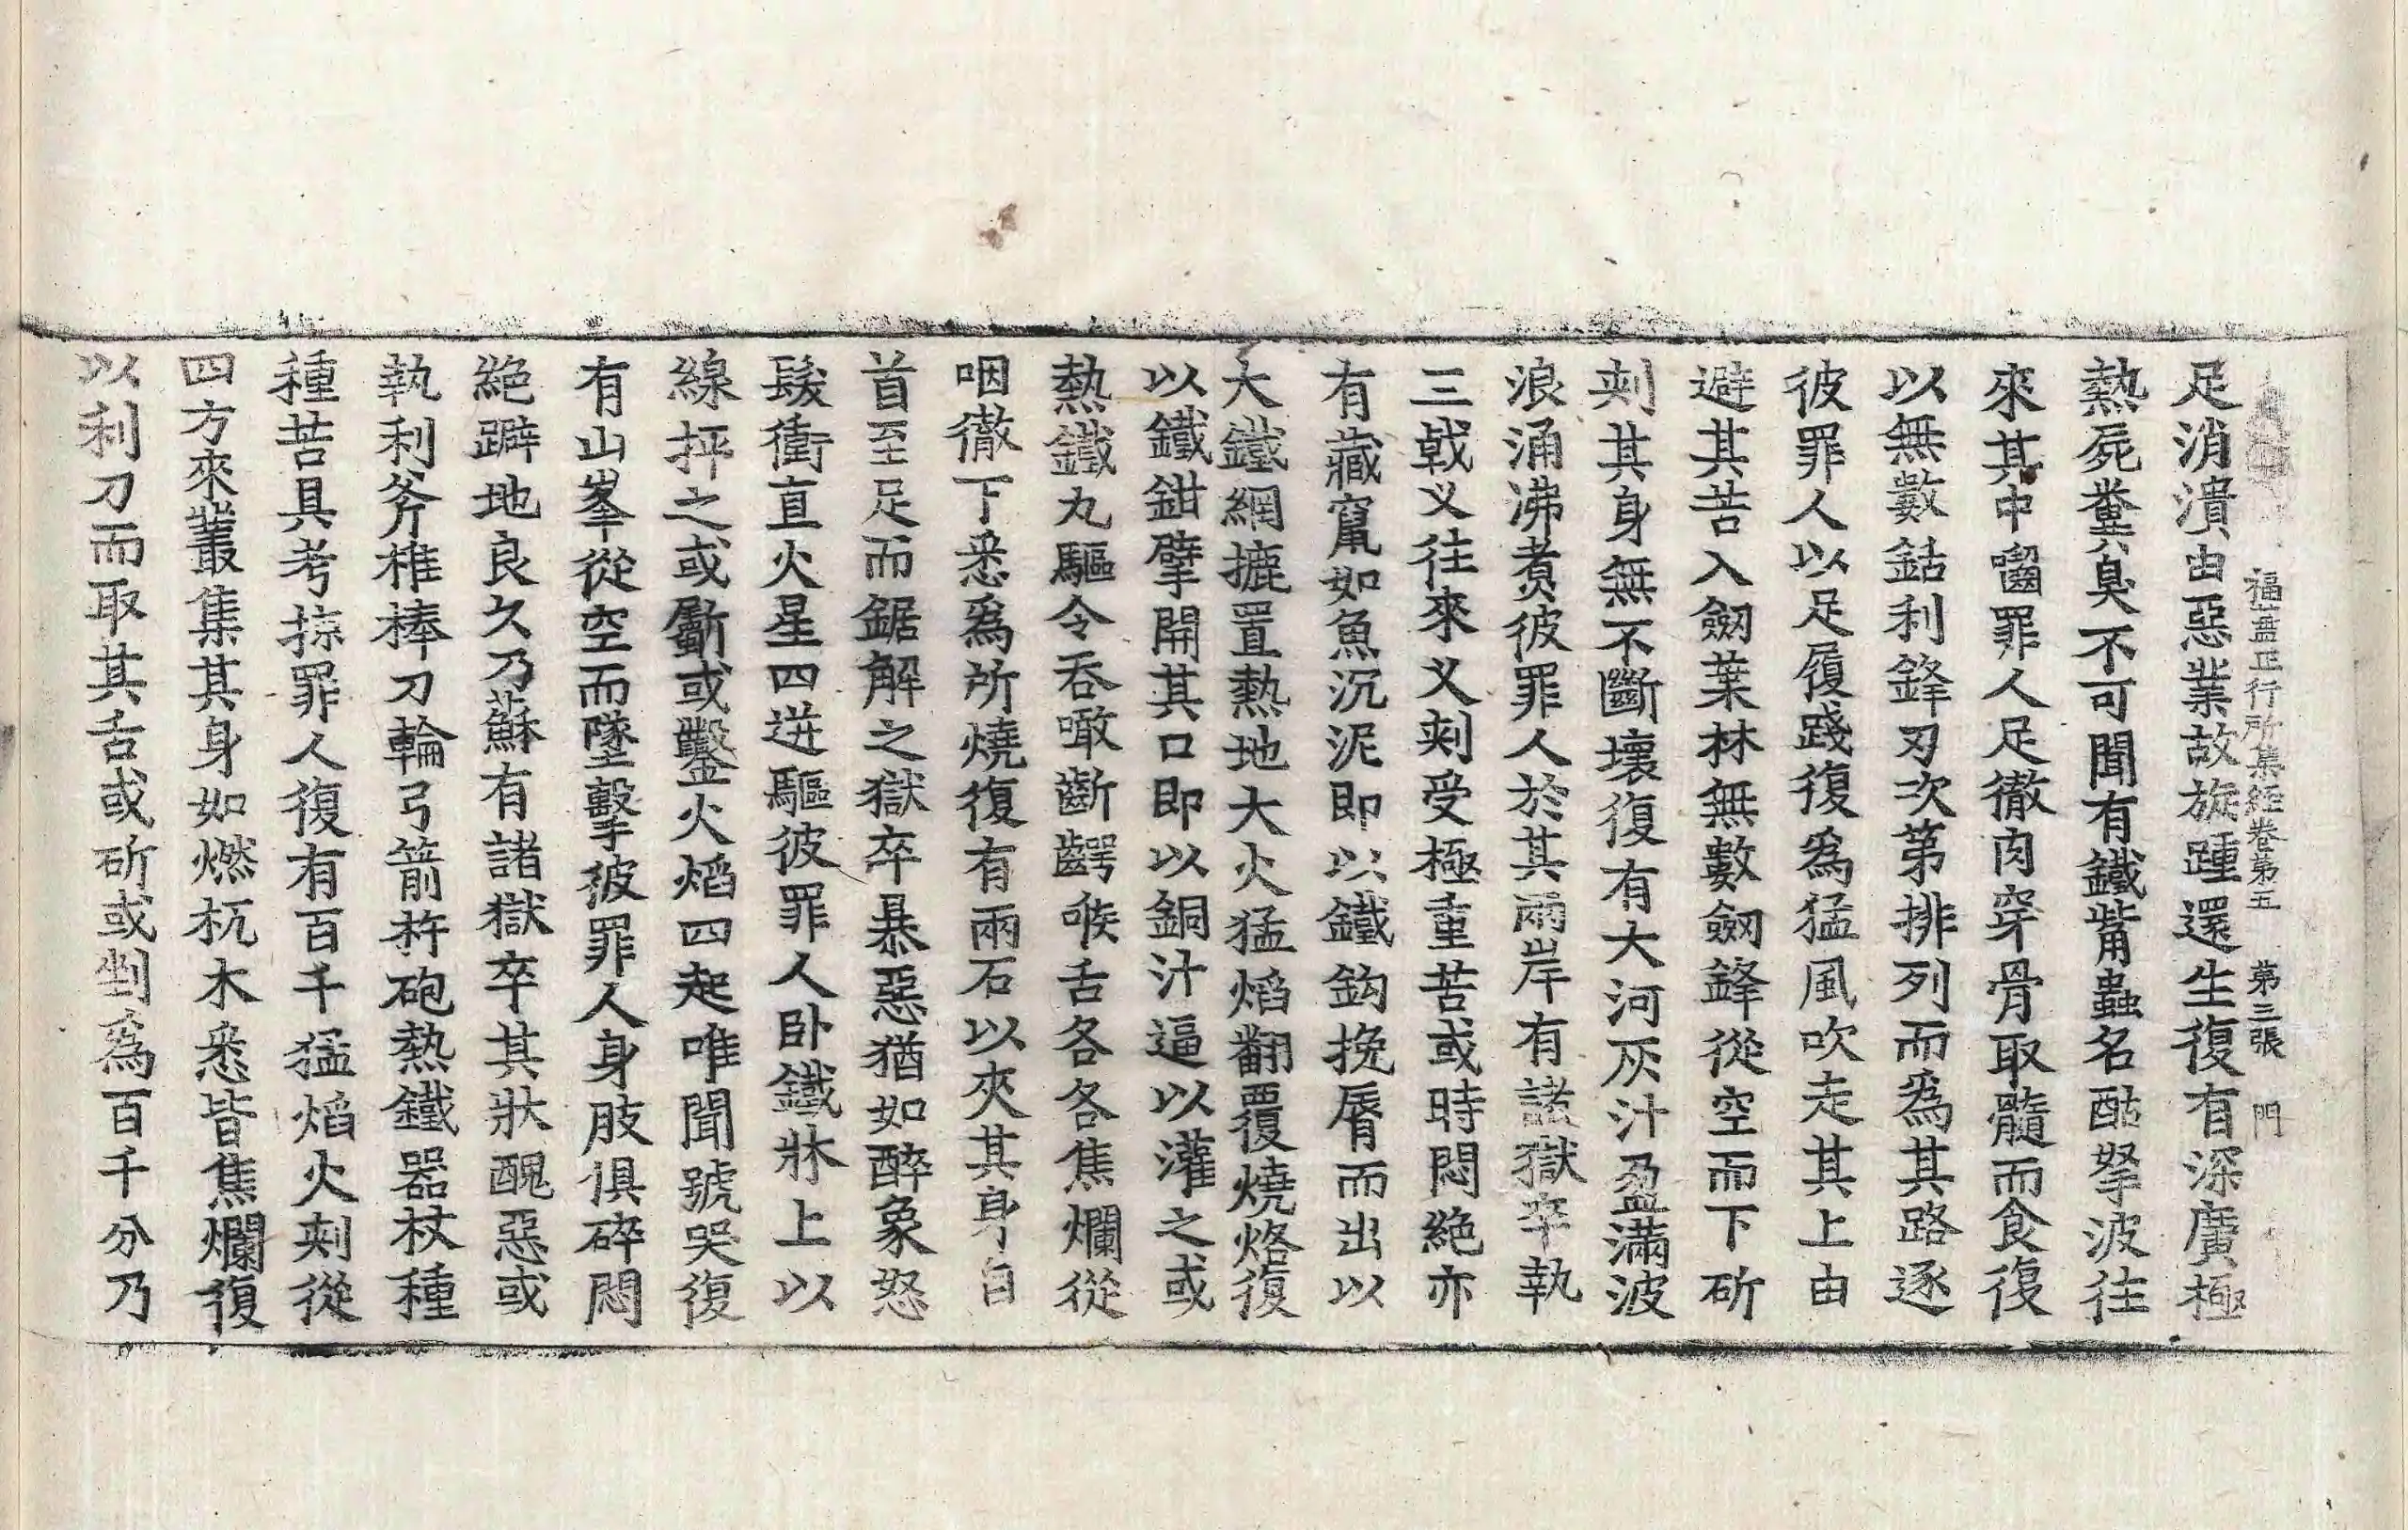 福蓋正行所集經卷第五 第三張 門
足消潰由惡業故旋踵還生復有深廣極
熱屍糞臭不可聞有鐵觜蟲名酤拏波往
來其中囓罪人足徹肉穿骨取髓而食復
以無數鈷利鋒刃次第排列而爲其路逐
彼罪人以足履踐復爲猛風吹走其上由
避其苦入劒葉林無數劒鋒從空而下斫
刾其身無不斷壞復有大河灰汁盈滿波
浪涌沸煮彼罪人於其兩岸有諸獄卒執
三戟叉往來叉刾受極重苦或時悶絕亦
有藏竄如魚沉泥即以鐵鈎挽脣而出以
大鐵網摝置熱地大火猛焰翻覆燒烙復
以鐵鉗擘開其口即以銅汁逼以灌之或
熱鐵丸驅令吞噉斷齶喉舌各各焦爛從
咽徹下悉爲所燒復有兩石以夾其身自
首至足而鋸解之獄卒暴惡猶如醉象怒
髮衝直火星四迸驅彼罪人卧鐵牀上以
線抨之或斸或鑿火焰四起唯聞號哭復
有山峯從空而墜擊彼罪人身肢俱碎悶
絕躃地良久乃蘇有諸獄卒其狀醜惡或
執利斧椎棒刀輪弓箭杵砲熱鐵器杖種
種苦具考掠罪人復有百千猛焰火刾從
四方來叢集其身如燃杌木悉皆焦爛復
以利刀而取其舌或斫或剉爲百千分乃